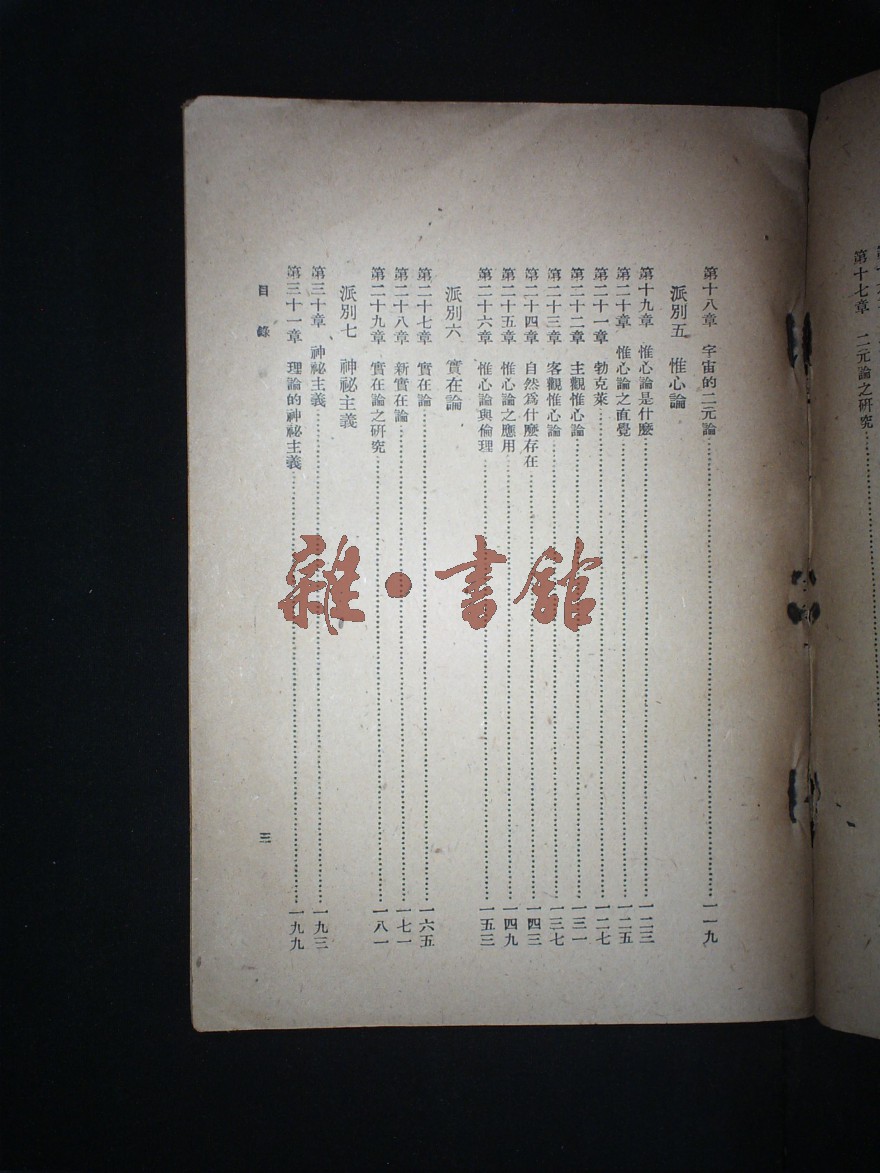 第十七章　二元論之研究
第十八章　宇宙的二元論……一一九
派別五　惟心論
第十九章　惟心論是什麼……一二三
第二十章　惟心論之直覺……一二五
第二十一章　勃克萊……一二七
第二十二章　主觀惟心論……一三一
第二十三章　客觀惟心論……一三七
第二十四章　自然爲什麼存在……一四三
第二十五章　惟心論之應用……一四九
第二十六章　惟心論與倫理……一五三
派別六　實在論
第二十七章　實在論……一六五
第二十八章　新實在論……一七一
第二十九章　實在論之研究……一八一
派別七　神祕主義
第三十章　神祕主義……一九三
第三十一章　理論的神祕主義……一九九
目錄
三
雜·書館